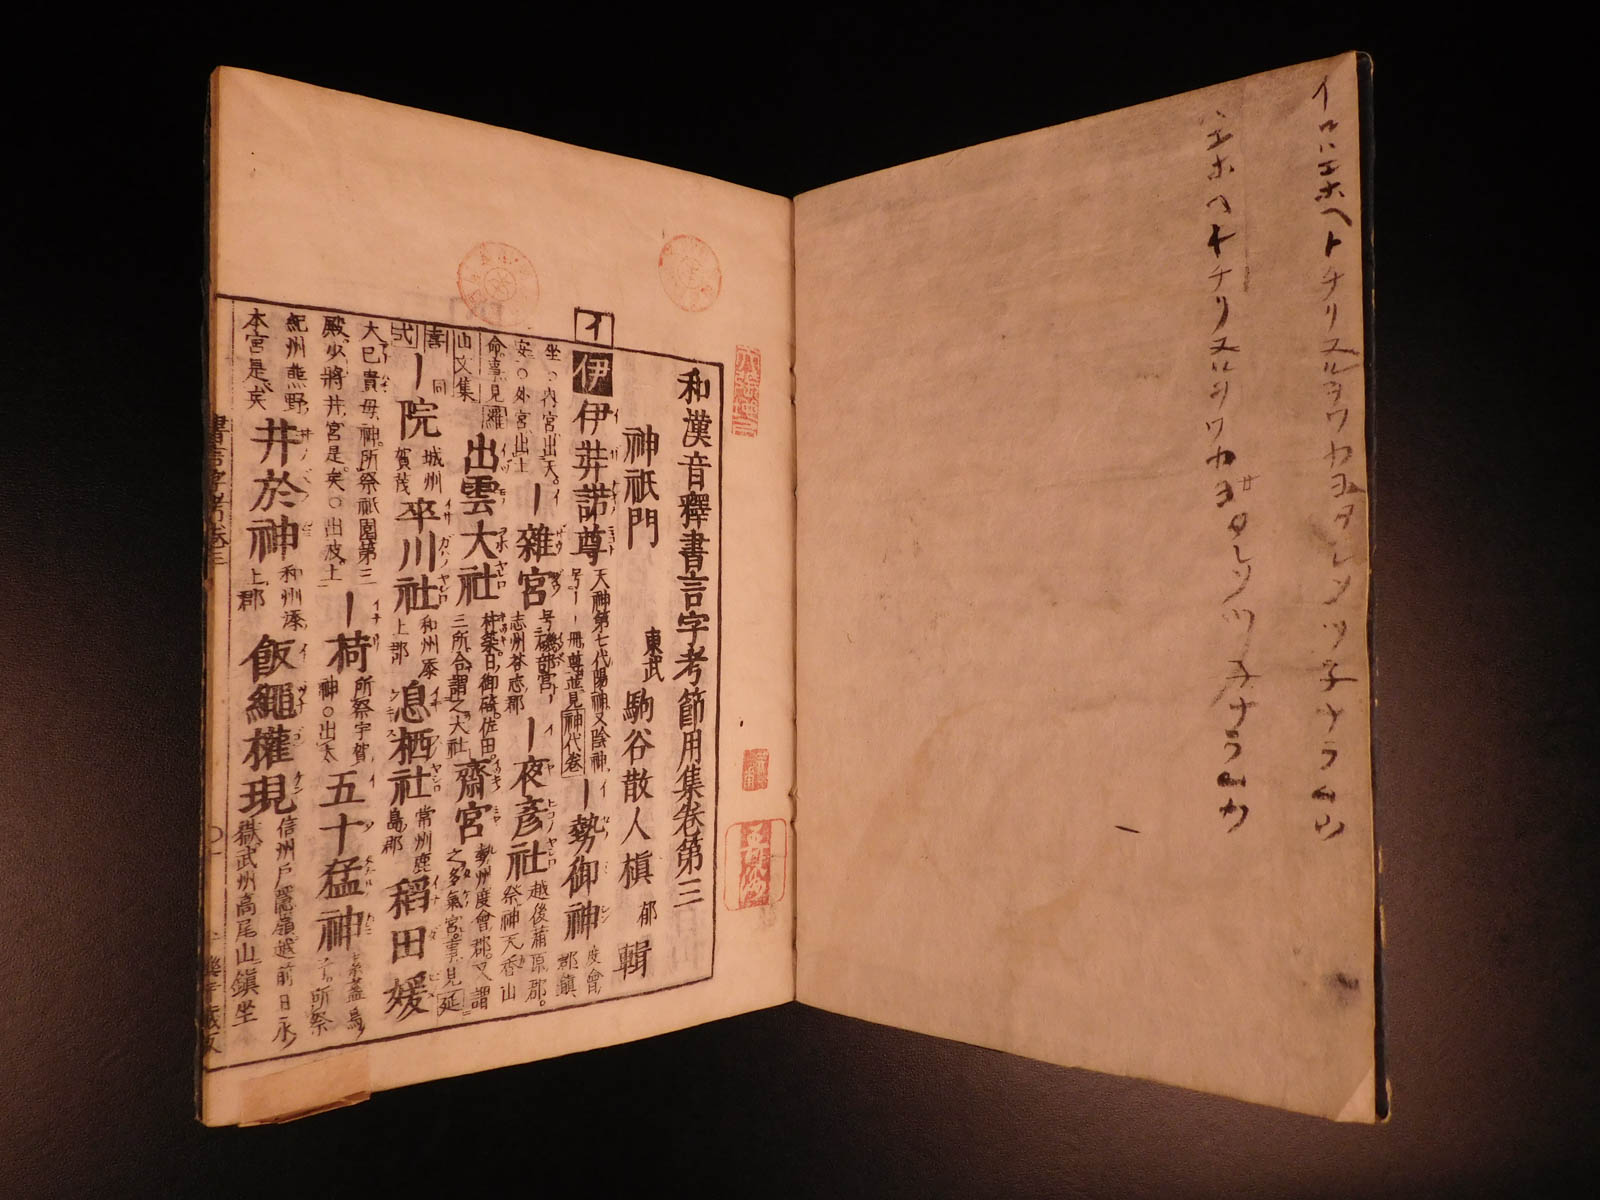 イロハエホヘトチリヌルヲワカヨタレソツ子ナラム
エホヘトチリヌルヲワカヨタレソツ子ナラム
和漢音釋書言字考節用集卷第三
東武 駒谷散人槇 郁 輯
神祇門
イ
伊 伊弉諾尊 天神第七代陽神又陰神号ー冊尊並見神代卷 ー勢御神 度會郡鎮
坐○内宮出天○外宮出上 ー雜宮 号磯部宮志州答志郡 ー夜彦社 越後蒲原郡祭神天香山
命事見 出雲大社 杵築日御碕佐田三所合謂之大社 齋宮 勢州度會郡又謂之多氣宮事見延
喜式 ー院 同城州賀茂 率川社 和州添上郡 息栖社 常州鹿島郡 稻田媛
大已貴母神所祭祇園第三殿少將井宮是矣○出 ー荷 所祭宇賀神○出太 五十猛神 所祭
紀州熊野本宮是矣 井於神 和州添上郡 飯繩權現 信州戸隱嶺越前日永嶽武州高尾山鎮坐
書言字考卷三